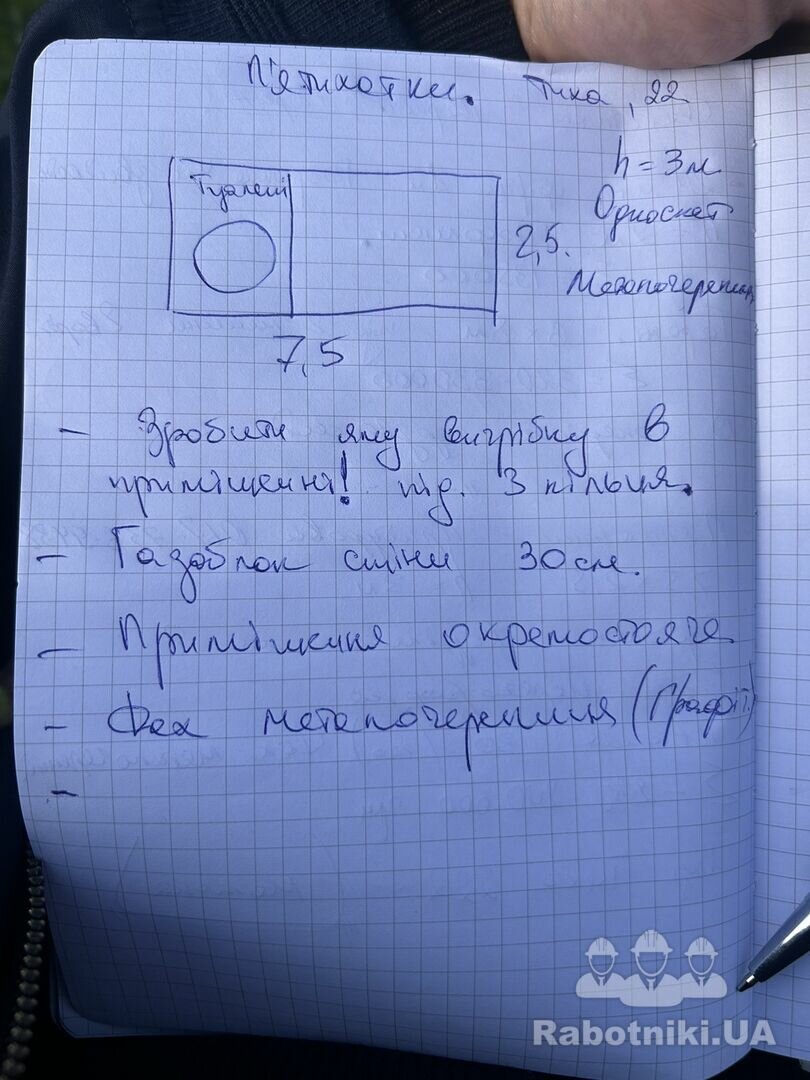 П'ятихатки. Тиха, 22
h = 3м
Односкат
Металочерепиц
Туалет
2,5.
7,5
- Зробити яму вигрібну в
приміщенні! під. 3 кільця.
- Газоблок стіни 30 см.
- Приміщення окремостояче
- Дах металочерепиця (Графіт)
-
Rabotniki.UA